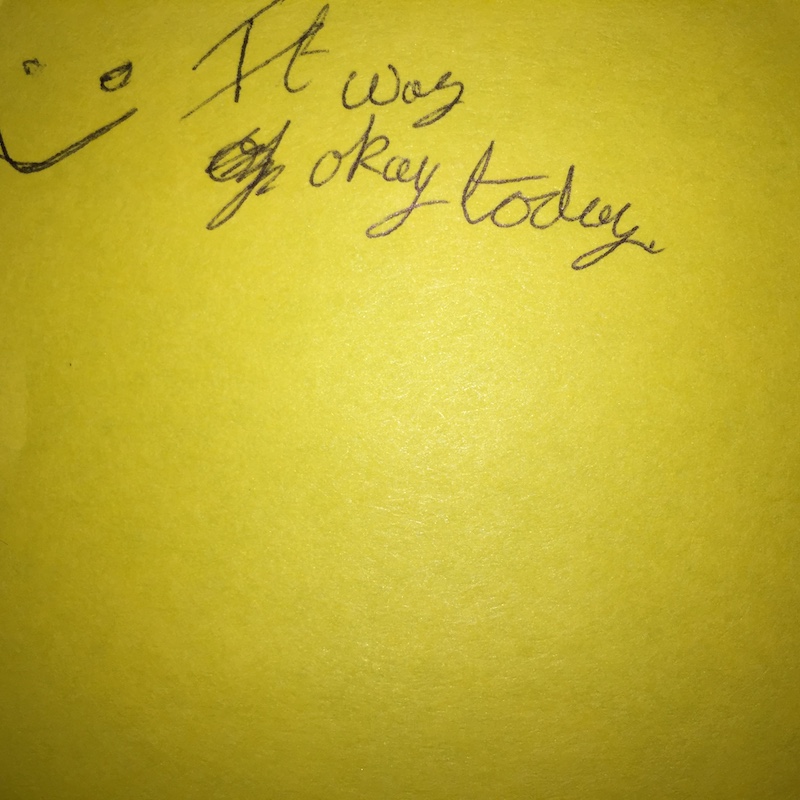 It was
okay today.